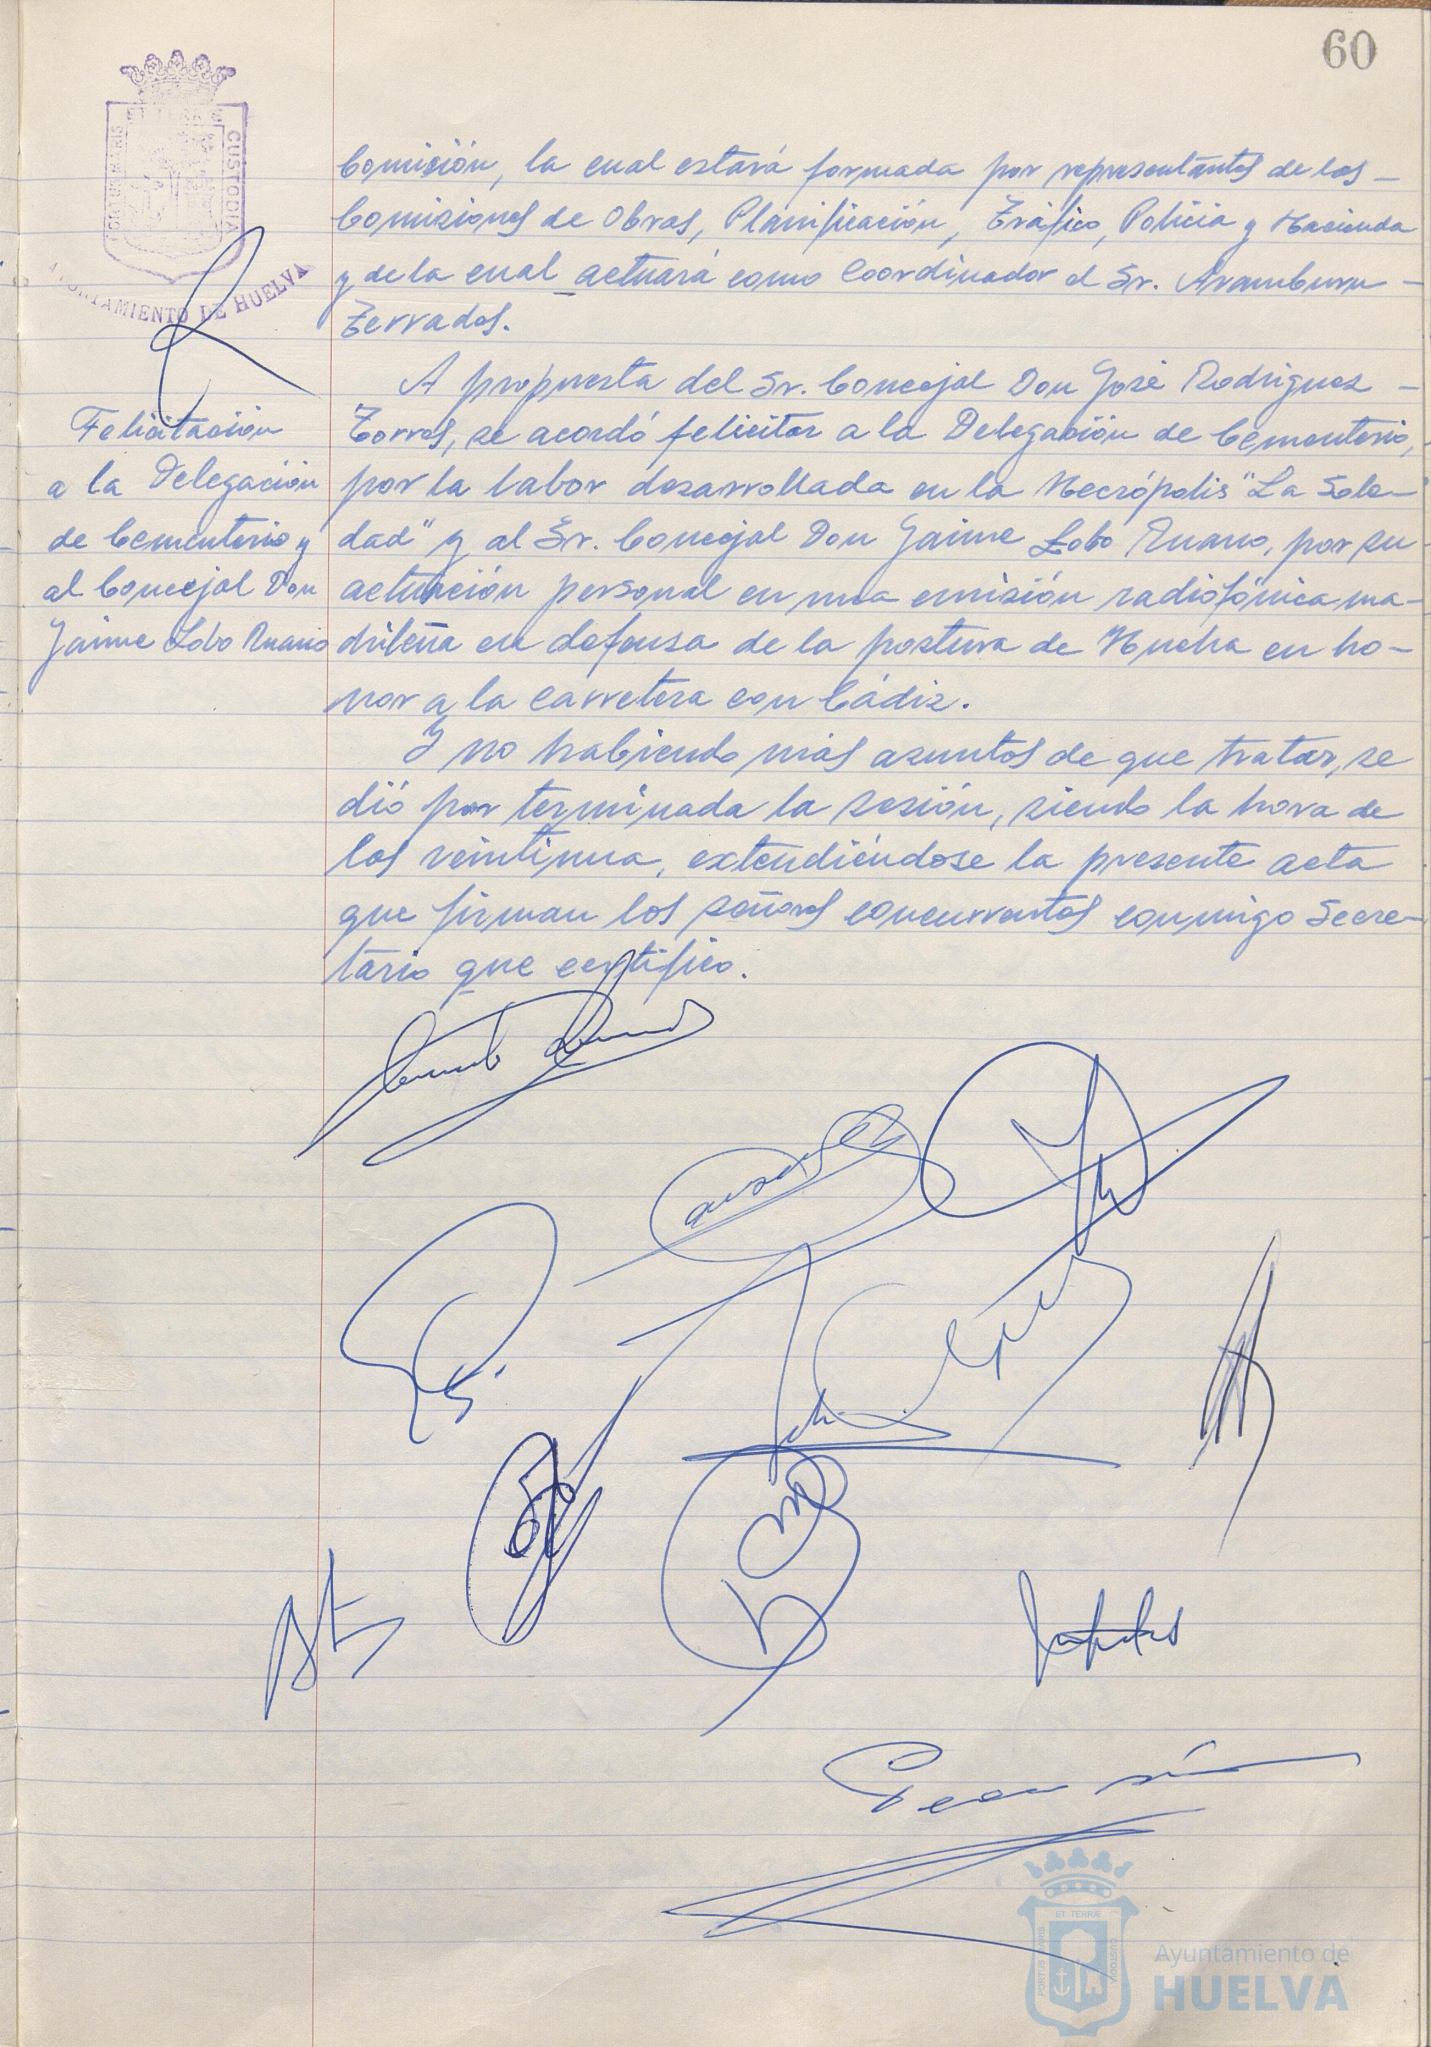 60
PORTUS MARIS
ET TERRÆ
CUSTODIA
AYUNTAMIENTO DE HUELVA
Comisión, la cual estará formada por representantes de las
Comisiones de Obras, Planificación, Tráfico, Policia y Hacienda
y de la cual actuará como Coordinador el Sr. Aramburu
Terrados.
Felicitación
a la Delegación
de Cementerio y
al Concejal Don
Jaime Lobo Ruano
A propuesta del Sr. Concejal Don José Rodriguez
Torres, se acordó felicitar a la Delegación de Cementerio,
por la labor desarrollada en la Necrópolis "La Sole-
dad" y al Sr. Concejal Don Jaime Lobo Ruano, por su
actuación personal en una emisión radiofónica ma-
drileña en defensa de la postura de Huelva en ho-
nor a la carretera con Cádiz.
Y no habiendo más asuntos de que tratar, se
dió por terminada la sesión, siendo la hora de
las veintiuna, extendiéndose la presente acta
que firman los señores concurrentes conmigo Secre-
tario que certifico.
PORTUS MARIS
ET TERRÆ
CUSTODIA
Ayuntamiento de
HUELVA